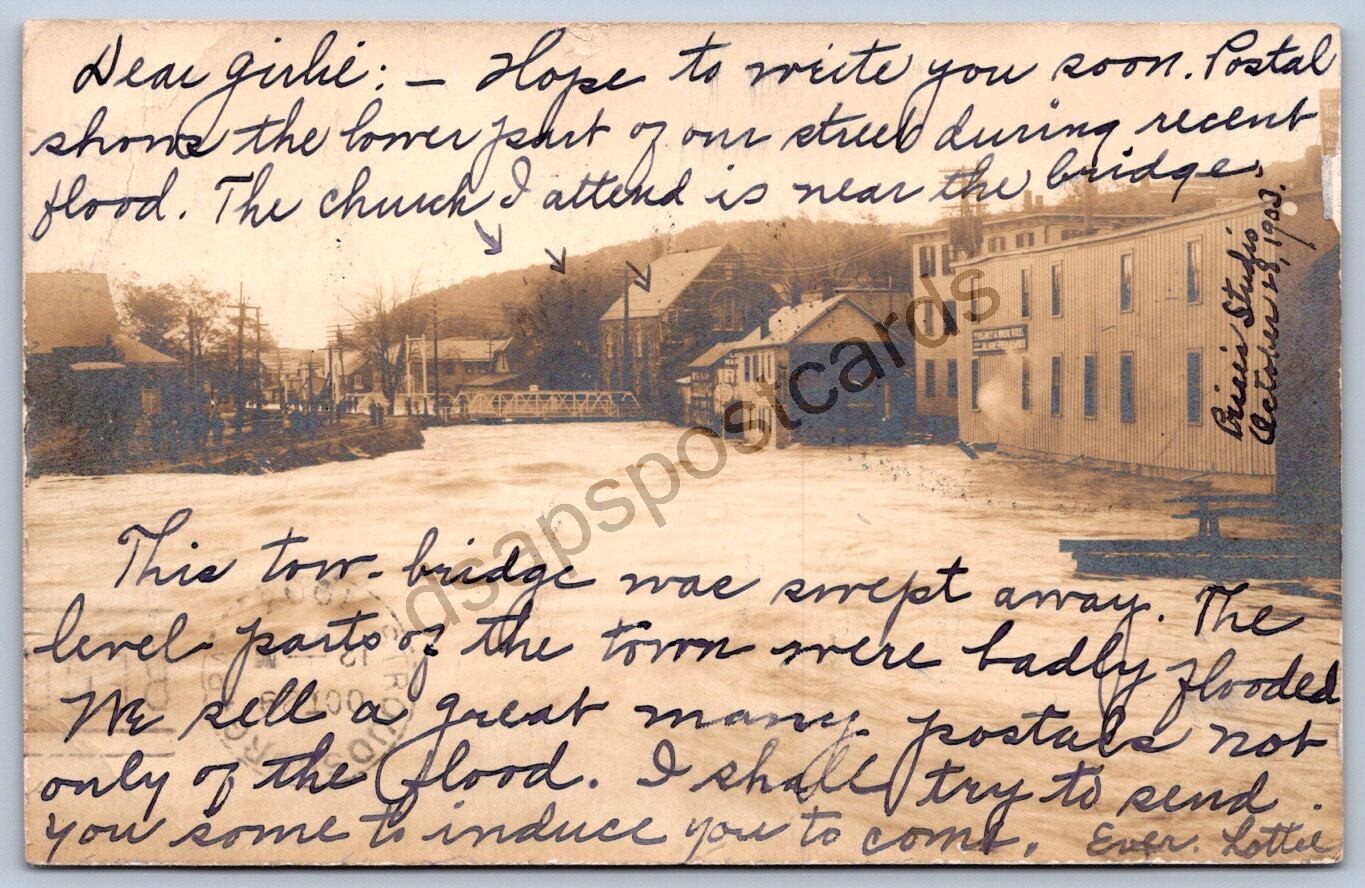 Dear Girlie: — Hope to write you soon. Postal
shows the lower part of our street during recent
flood. The church I attend is near the bridge.
Studio
October 28, 1903.
dsapspostcards
This tow-bridge was swept away. The
level parts of the town were badly flooded
We sell a great many postals not
only of the flood. I shall try to send
you some to induce you to come. Ever. Lottie